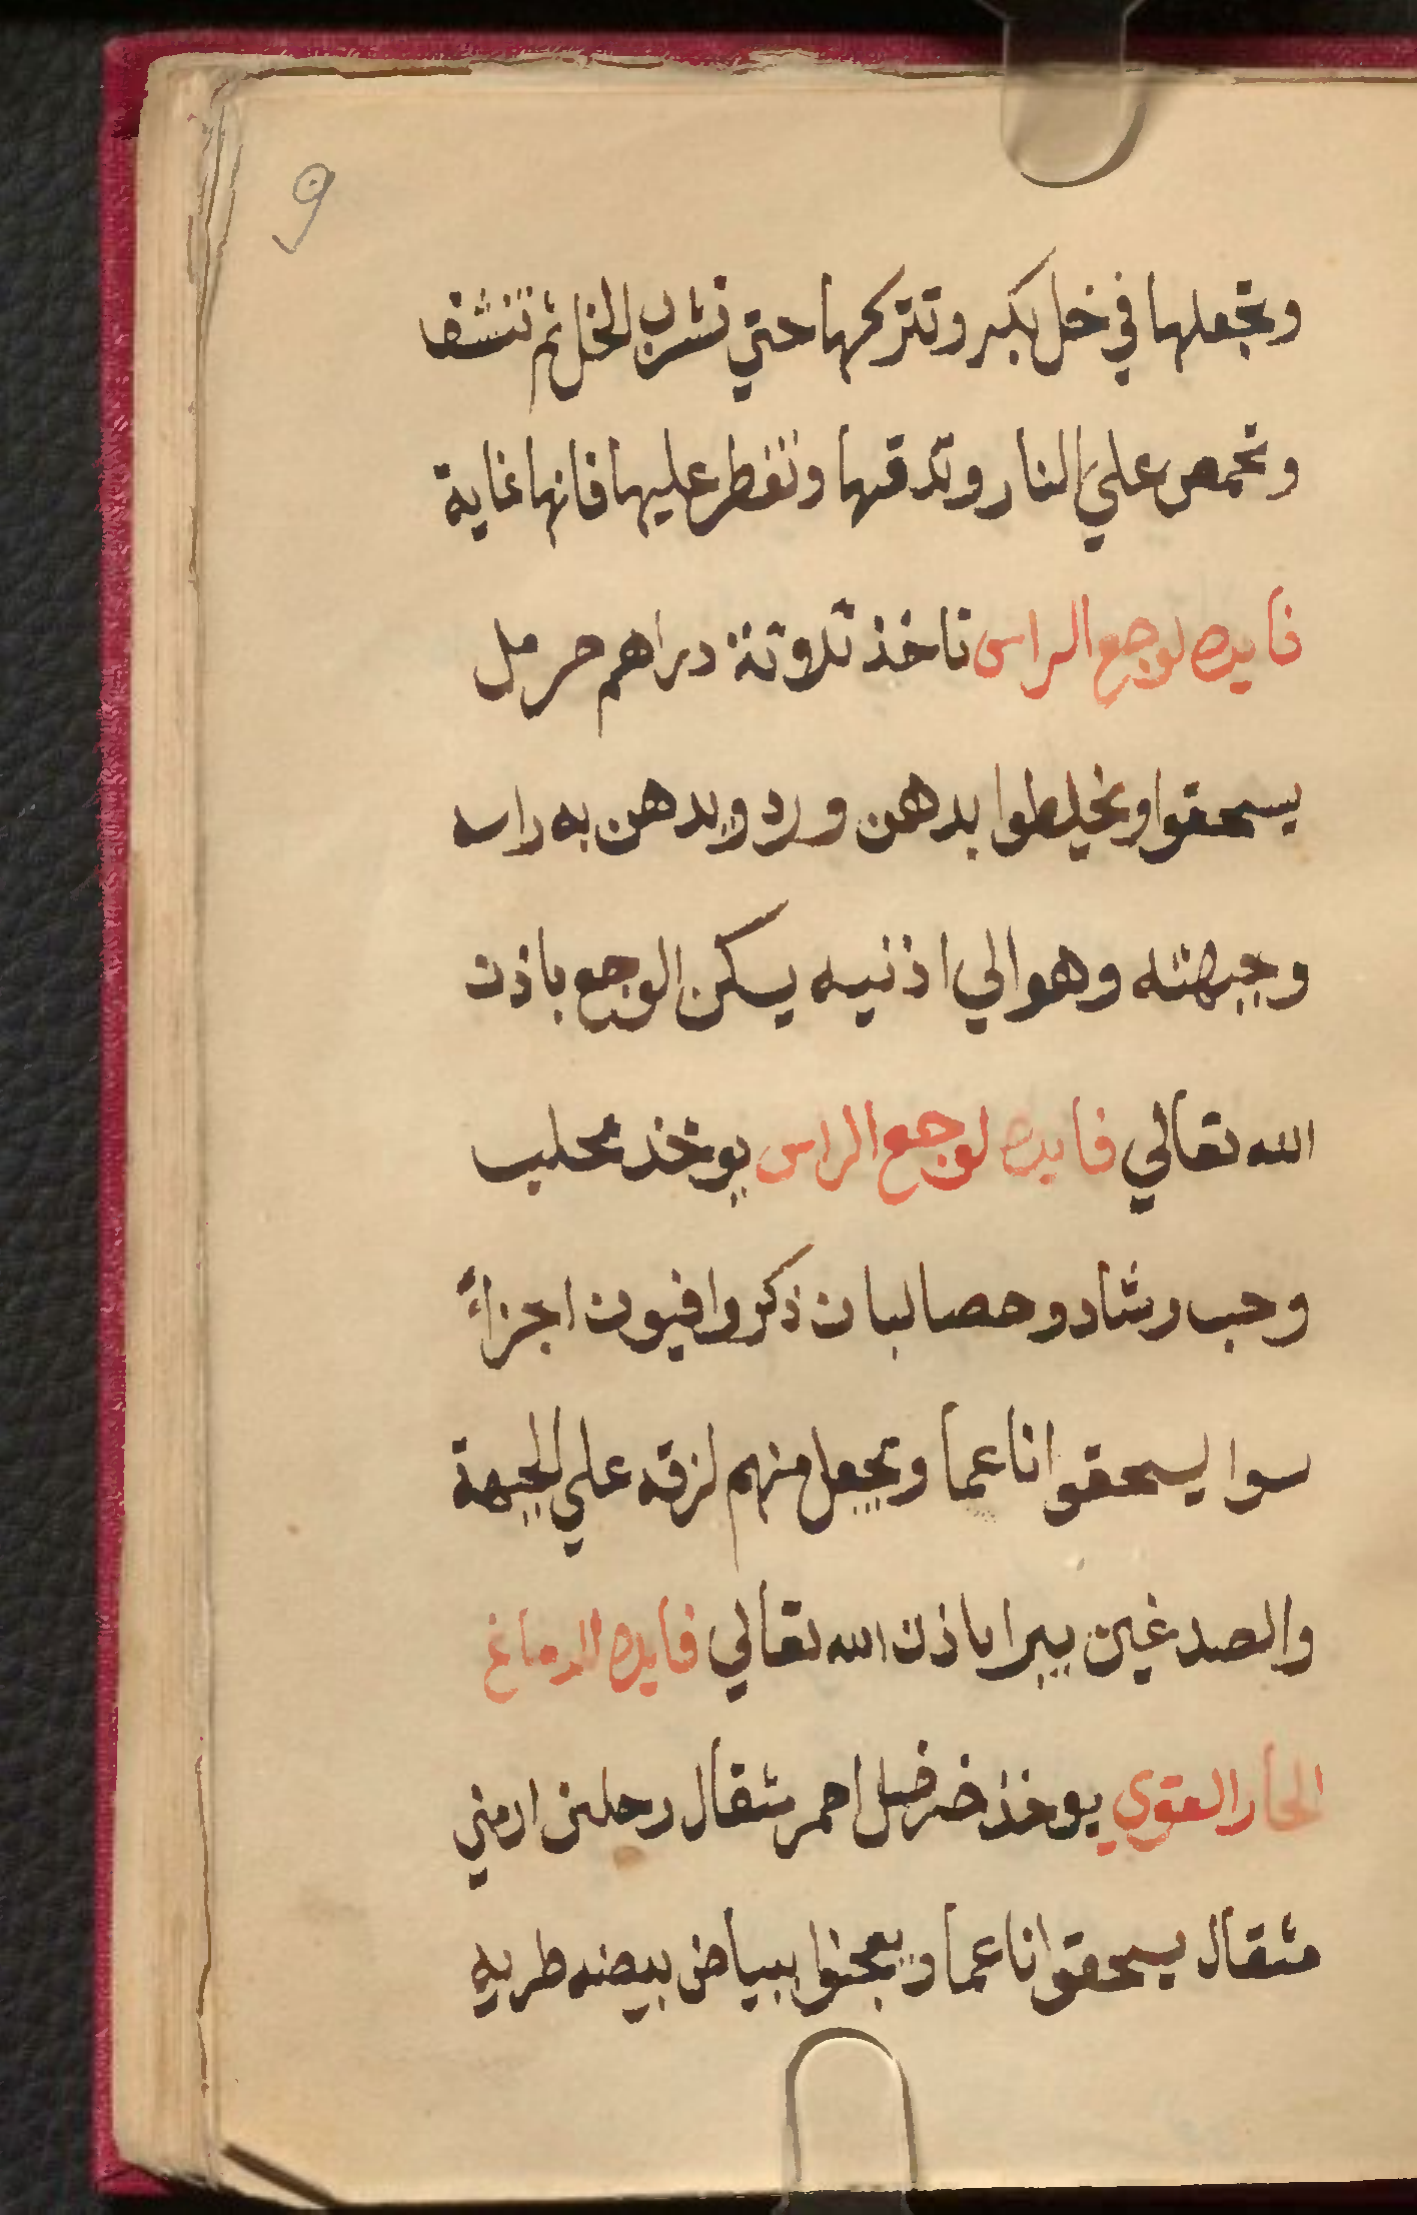 9
وتجعلها في خل بكر وتتركها حتي تشرب الخل ثم تنشف
وتحمص علي النار وتدقها وتفطر عليها فانها غاية
فايده لوجع الراس تاخذ ثلاوثة دراهم حرمل
يسحقوا ويخلطوا بدهن ورد ويدهن به راسه
وجبهته وهوالي اذنيه يسكن الوجع باذن
الله تعالي فايده لوجع الراس يوخذ محلب
وحب رشاد وحصا لبان ذكر وافيون اجزاءً
سوا يسحقوا ناعما وتجعل منهم لزقه علي الجبهة
والصدغين يبرا باذن الله تعالي فايده للدماغ
الحار القوي يوخذ احمر مثقال ارمني
مثقال يسحقوا ناعما ويعجنوا ببياض بيضه طريه